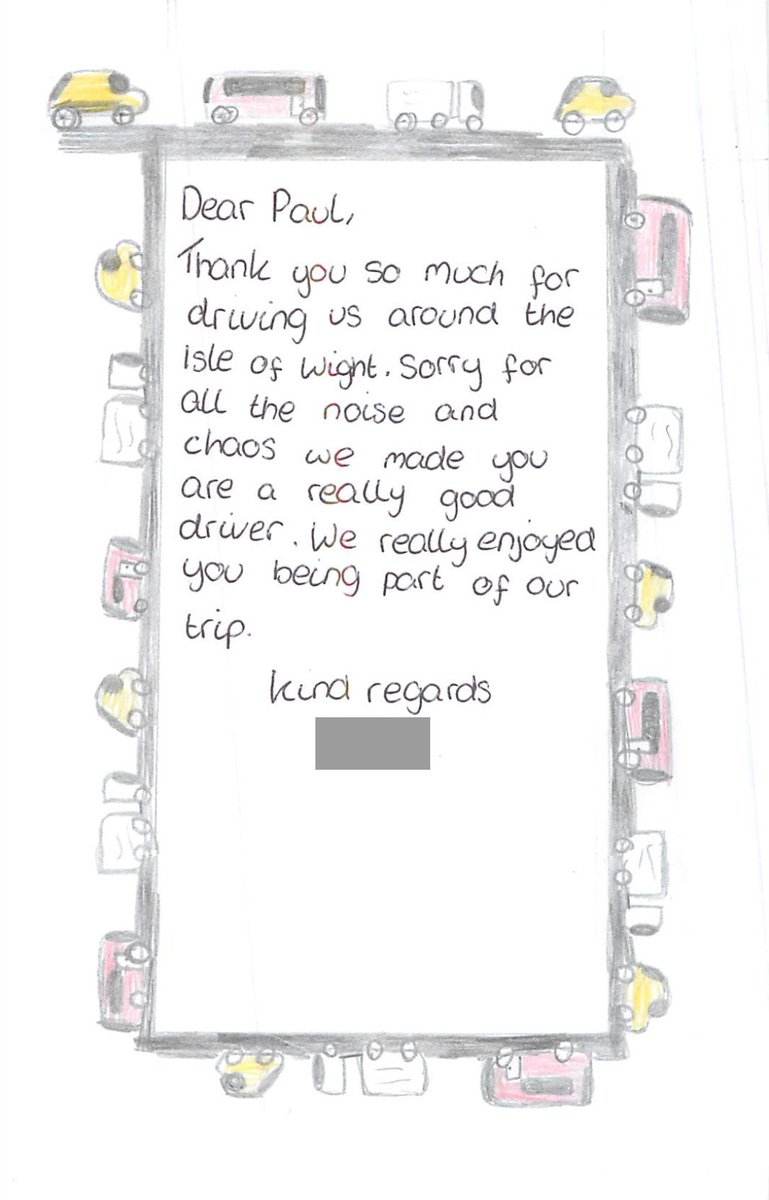 Dear Paul,
Thank you so much for
driving us around the
isle of Wight. Sorry for
all the noise and
chaos we made you
are a really good
driver. We really enjoyed
you being part of our
trip.
kind regards